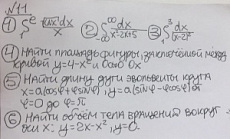 №11
① ∫₁ᵉ (ln x)dx/x ② ∫ dx/(x²-2x+5) ③ ∫₁³ dx/(x-2)²
④ НАЙТИ ПЛОЩАДЬ ФИГУРЫ, ЗАКЛЮЧЕННОЙ МЕЖДУ
КРИВОЙ y=4-x² И ОСЬЮ Ox
⑤ НАЙТИ ДЛИНУ ДУГИ ЭВОЛЬВЕНТЫ КРУГА
x=a(cosφ+φsinφ), y=a(sinφ-φcosφ) от
φ=0 до φ=π.
⑥ НАЙТИ ОБЪЁМ ТЕЛА ВРАЩЕНИЯ ВОКРУГ
ОСИ x: y=2x-x², y=0.